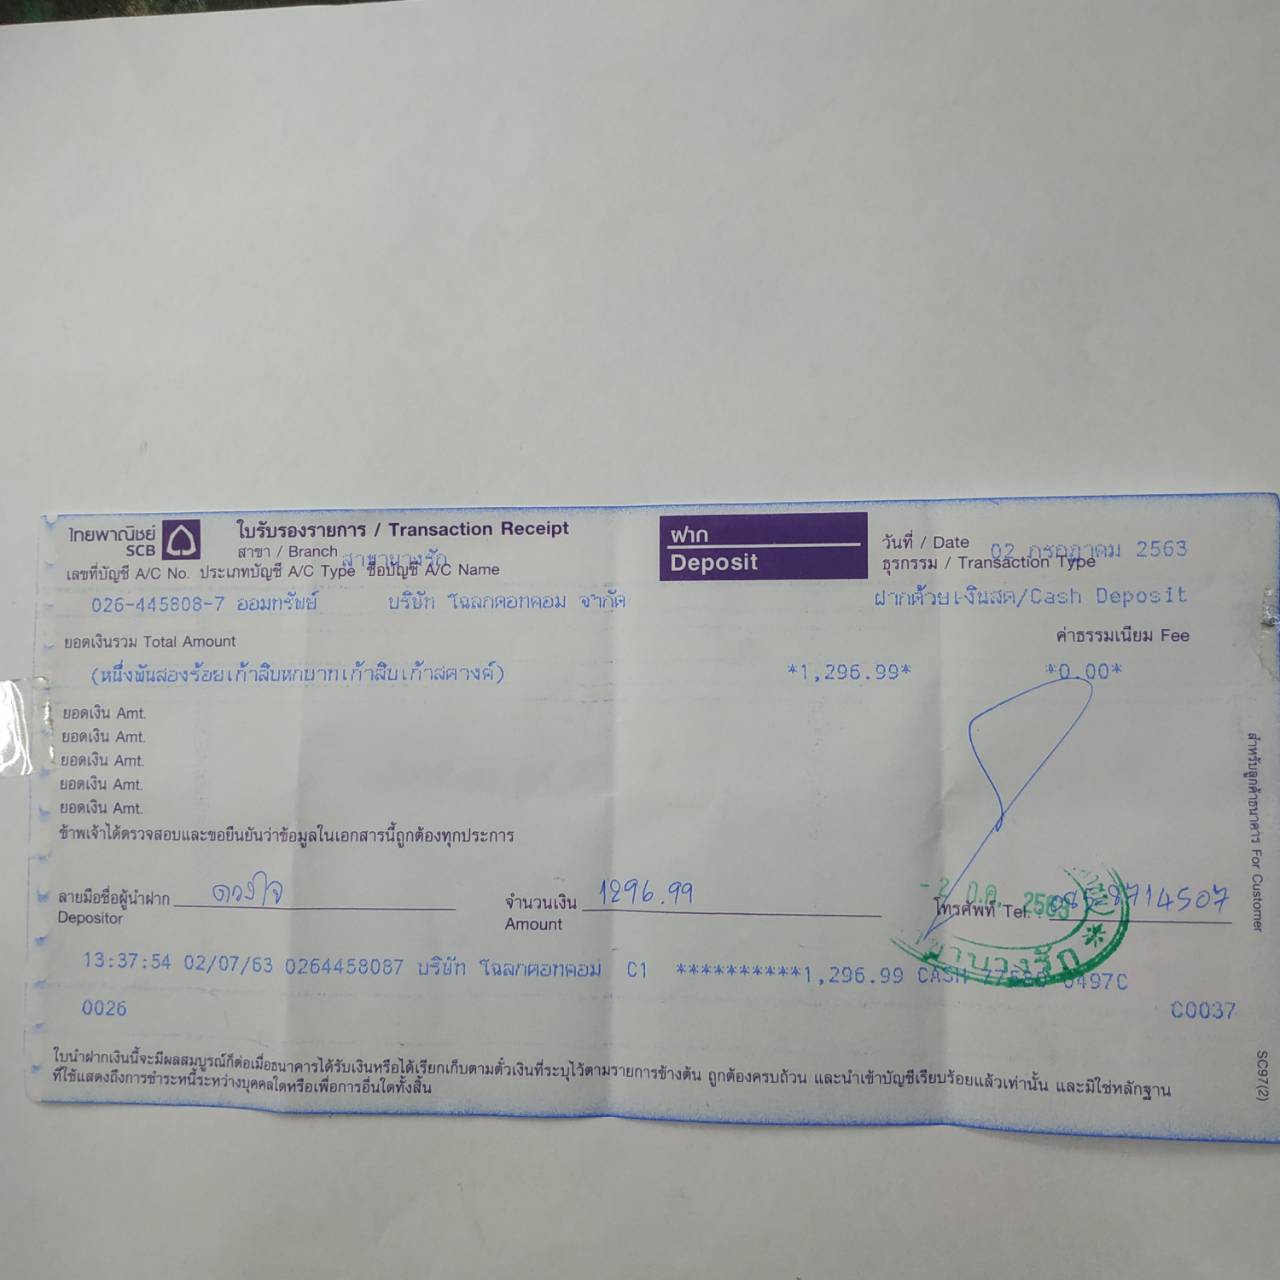 ไทยพาณิชย์ SCB
ใบรับรองรายการ / Transaction Receipt
ฝาก Deposit
วันที่ / Date 02 กรกฎาคม 2563
สาขา / Branch สาขานางรัก
ธุรกรรม / Transaction Type
เลขที่บัญชี A/C No. ประเภทบัญชี A/C Type ชื่อบัญชี A/C Name
026-445808-7 ออมทรัพย์ บริษัท โฉลกดอทคอม จำกัด ฝากด้วยเงินสด/Cash Deposit
ยอดเงินรวม Total Amount ค่าธรรมเนียม Fee
(หนึ่งพันสองร้อยเก้าสิบหกบาทเก้าสิบเก้าสตางค์) *1,296.99* *0.00*
ยอดเงิน Amt.
ยอดเงิน Amt.
ยอดเงิน Amt.
ยอดเงิน Amt.
ยอดเงิน Amt.
ข้าพเจ้าได้ตรวจสอบและขอยืนยันว่าข้อมูลในเอกสารนี้ถูกต้องทุกประการ
ลายมือชื่อผู้นำฝาก ดวงใจ จำนวนเงิน 1296.99 โทรศัพท์ Tel.
Depositor Amount
13:37:54 02/07/63 0264458087 บริษัท โฉลกดอทคอม C1 **********1,296.99 CASH
0026 C0037
ใบนำฝากเงินนี้จะมีผลสมบูรณ์ก็ต่อเมื่อธนาคารได้รับเงินหรือได้เรียกเก็บตามตั๋วเงินที่ระบุไว้ตามรายการข้างต้น ถูกต้องครบถ้วน และนำเข้าบัญชีเรียบร้อยแล้วเท่านั้น และมิใช่หลักฐาน
ที่ใช้แสดงถึงการชำระหนี้ระหว่างบุคคลใดหรือเพื่อการอื่นใดทั้งสิ้น
สำหรับลูกค้าธนาคาร For Customer
SC97(2)